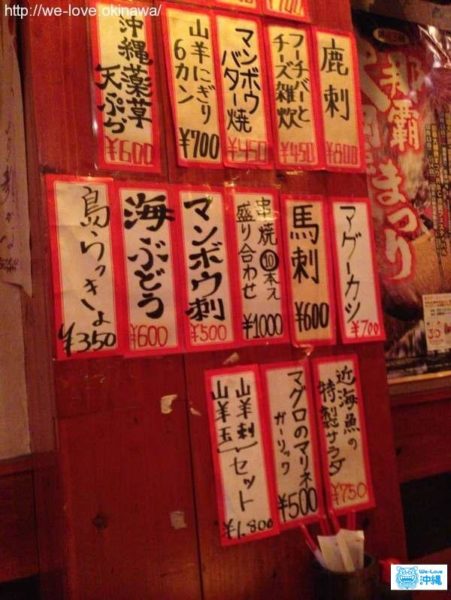 http://we-love.okinawa/
鹿刺
¥800
フーチバーと
チーズ雑炊
¥450
マンボウ
バター焼
¥450
山羊にぎり
6カン
¥700
沖縄薬草
天ぷら
¥600
マグーカツ
¥700
馬刺
¥600
串焼⑩本
盛り合わせ
¥1000
マンボウ刺
¥500
海ぶどう
¥600
島らっきょ
¥350
近海魚の
特製サラダ
¥750
マグロのマリネ
ガーリック
¥500
山羊刺
山羊玉
セット
¥1,800
那覇
まつり
We-Love
沖縄